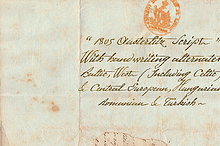 "1805 Austerlitz Script"
With handwriting alternates
Baltic, West, (Including Celtic)
& Central European, Hungarian
Romanian & Turkish -